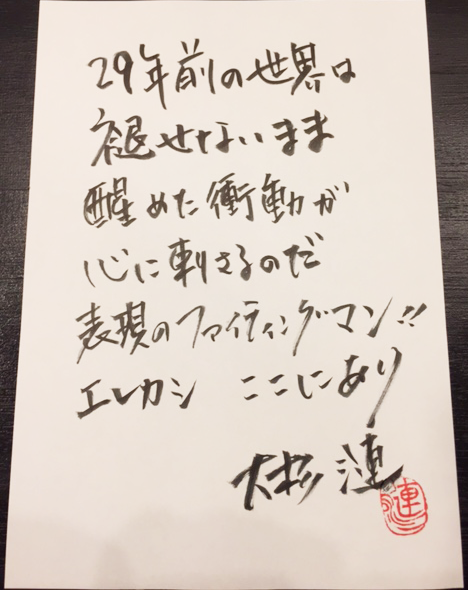 29年前の世界は
褪せないまま
醒めた衝動が
心に刺さるのだ
表現のファイティングマン!!
エレカシ ここにあり
大杉 漣
漣